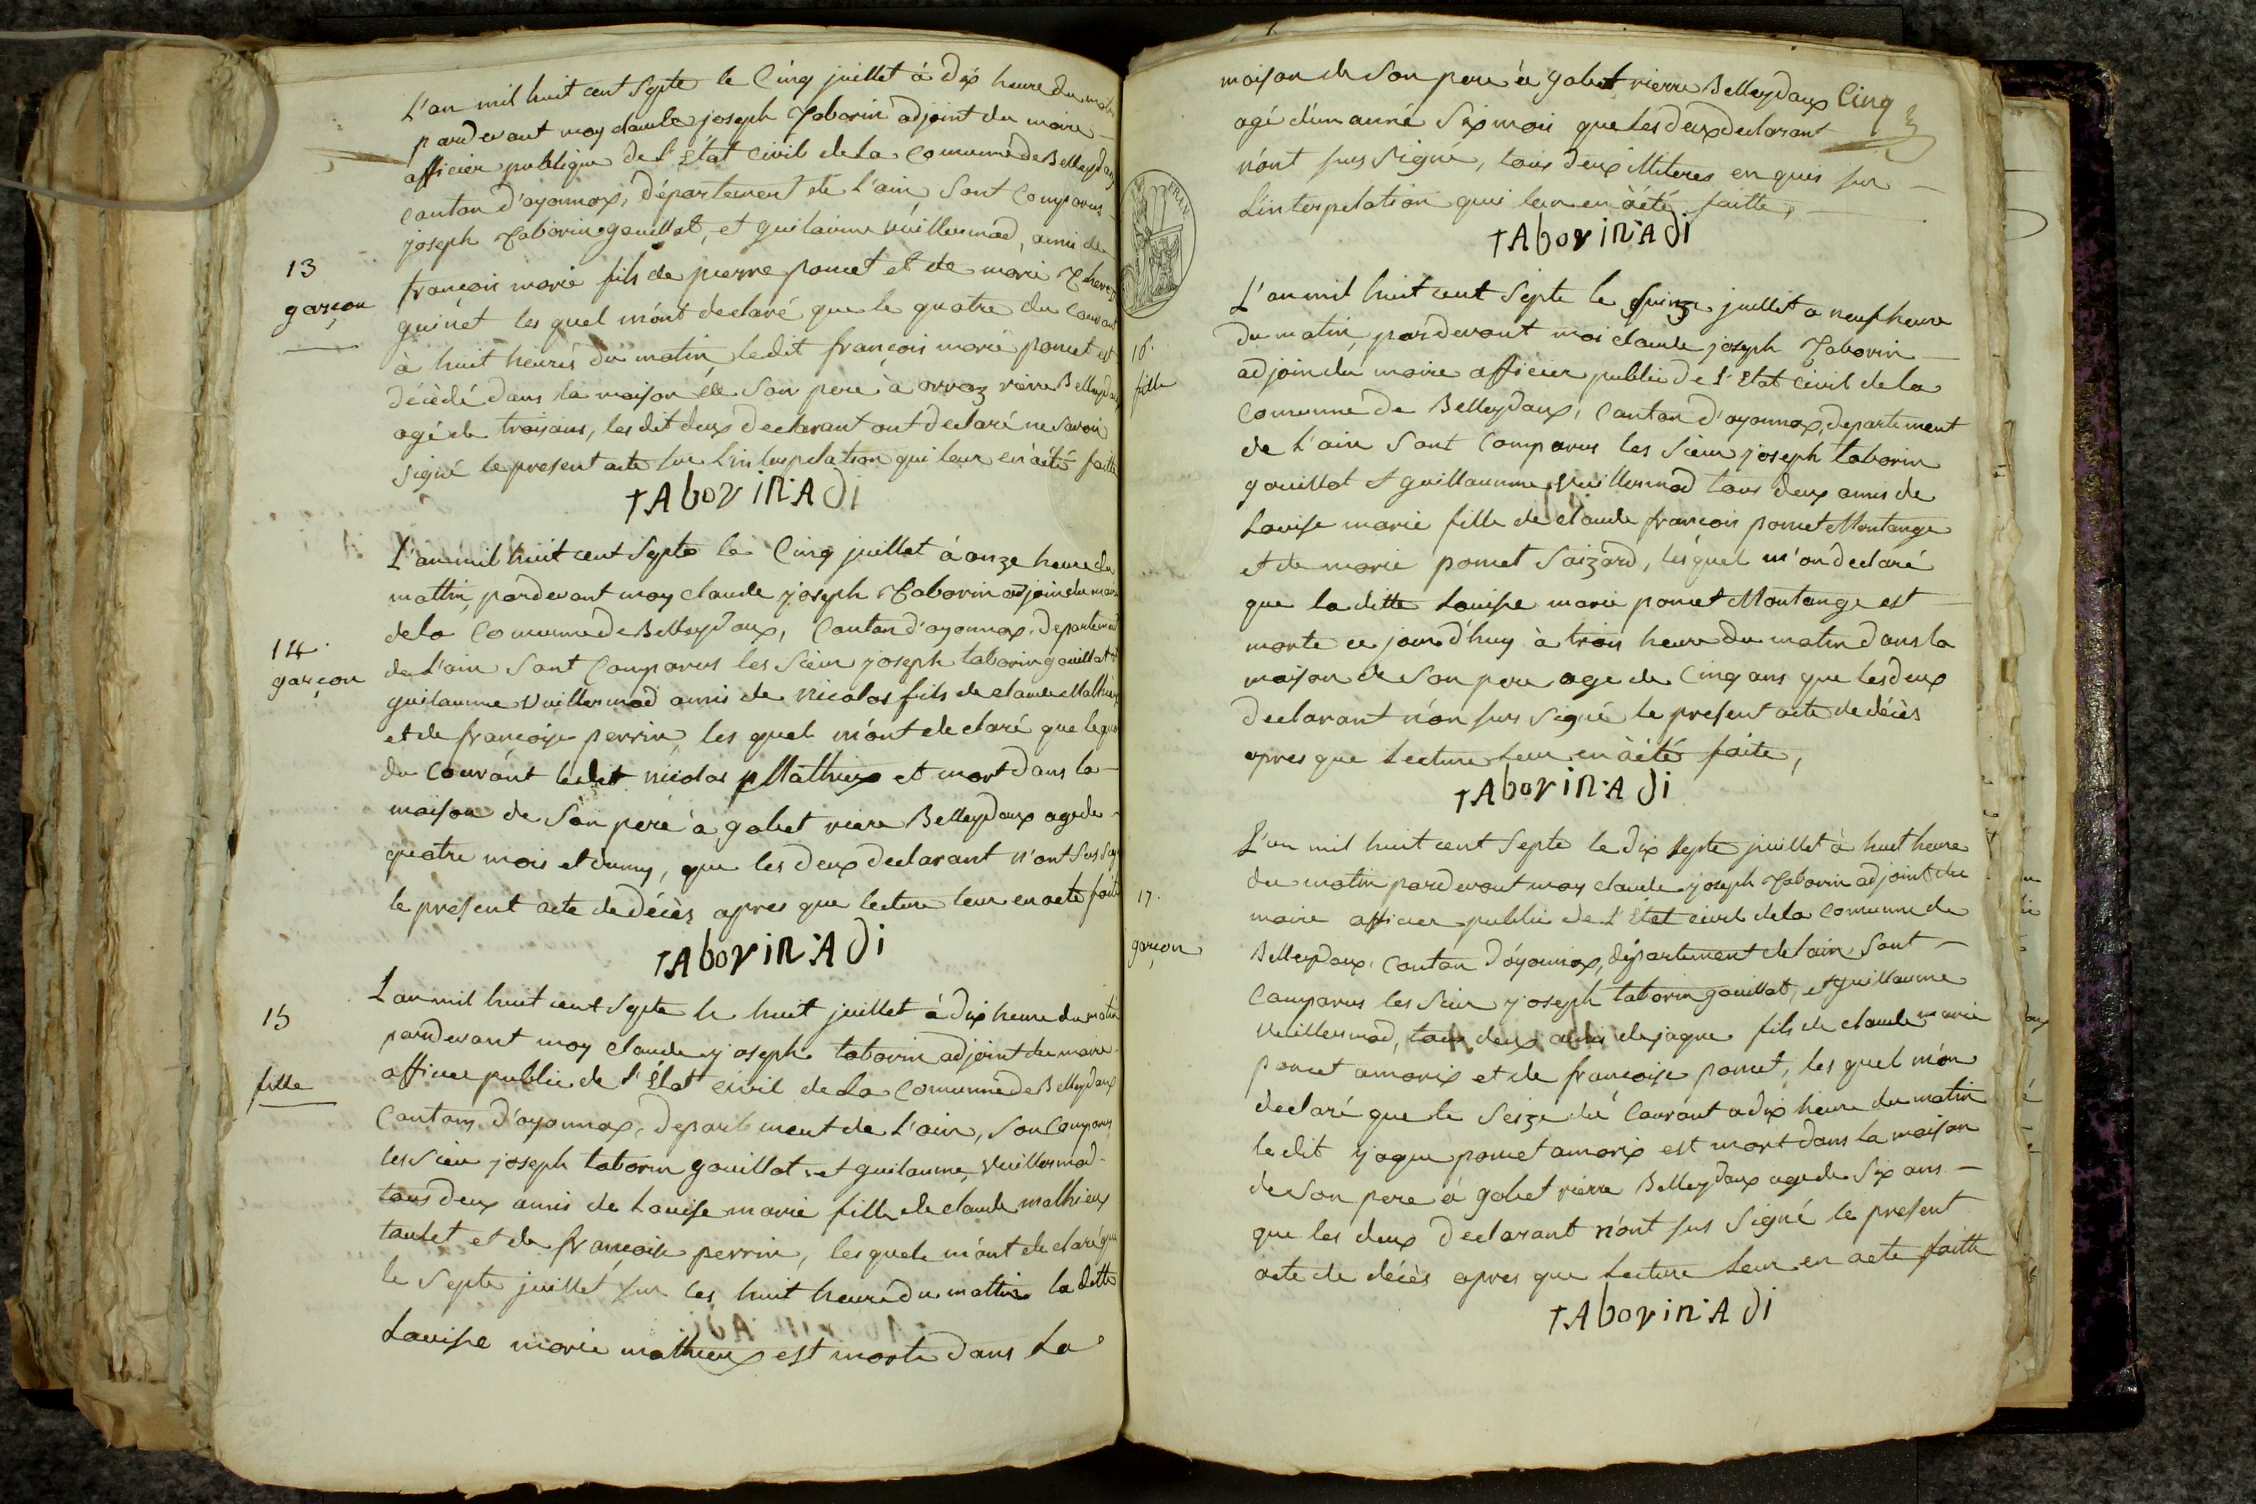 L'an mil huit cent Septe le Cinq juillet à dix heure du matin
pardevant moy claude joseph Taborin adjoint du maire
officier publique de l'Etat Civil de la Comunne de Belleydoux
Canton d'oyonnax, département de l'ain, Sont Comparus
joseph Taborin gouillat, et guilaume vuillermod, amis de
13
garçon
françois marie fils de pierre poncet et de marie
guinet les quel m'ont declaré que le quatre du Courant
à huit heures du matin ledit françois marie poncet est
décèdé dans la maison de Son pere à orvaz riere Belleydoux
agé de trois ans, les dit deux declarant ont declaré ne Savoir
Signé le present acte Sur l'interpelation qui leur en àété faitte
TAborin Adi
L'an mil huit cent Septe le Cinq juillet à onze heure du
mattin, pardevant moy claude joseph Taborin adjoin du maire
de la Comunne de Belleydoux, Canton d'oyonnax, departement
14
garçon
de L'ain Sont Comparus les Sieur joseph taborin gouillat et
guilaume Vuillermod amis de nicolas fils de claude Mathieux
et de françoise perrin, les quel m'ont declaré que le
du Courant ledit nicolas Mathieux et mort dans la
maison de Son pere à gobet riere Belleydoux agé de
quatre mois et demy, que les deux declarant n'ont Sus
le present acte de décès apres que lecture leur en aeté faitte
TAborin Adi
15
L'an mil huit cent Septe le huit juillet à dix heure du matin
pardevant moy claude joseph taborin adjoint du maire
fille
officier public de l'Etat Civil de la Comunne de Belleydoux
Canton d'oyonnax, departement de L'ain, Son Comparus
les Sieur joseph taborin gouillat, et guilaume, Vuillermod
tous deux amis de Louise marie fille de claude mathieux
tautet et de françoise perrin, lesquels m'ont declaré que
le Septe juillet Sur les huit heure du mattin la ditte
Louise marie mathieux est morte dans La
maison de Son pere à gobet riere Belleydoux Cinq
agé d'un anné Six mois que les deux declarant
n'ont sus Signé, tous deux illiteres en quis sur
L'interpelation qui leur en àété faitte,
TAborin Adi
FRAN
L'an mil huit cent Septe le quinze juillet a neuf heure
du matin, pardevant moi claude joseph Taborin
16.
fille
adjoin du maire officier public de l'Etat Civil de la
Comunne de Belleydoux, Canton d'oyonnax, departement
de L'ain Sont Comparus les Sieur joseph taborin
gouillat et guillaumme Vuillermod tous deux amis de
Louise marie fille de claude françois poncet Montange
et de marie poncet Saizard, les quel m'on declaré
que la ditte Louise marie poncet Montange est
morte ce jourd'huy à trois heure du matin dans la
maison de Son pere age de Cinq ans que les deux
declarant n'on sus Signé le present acte de décès
apres que Lecture Leur en àété faite,
TAborin Adi
L'an mil huit cent Septe le dix Septe juillet à huit heure
du matin pardevant moy claude joseph Taborin adjoint du
17.
garçon
maire officier public de L'Etat civil de la Comunne de
Belleydoux, Canton d'oyonnax, département de lain Sont
Comparus les Sieur joseph taborin gouillat, et guillaume
Vuillermod, tous deux amis de jaque fils de claude marie
poncet amorix et de françoise poncet, les quel m'on
declaré que le Seize du Courant a dix heure du matin
ledit jaque poncet amorix est mort dans la maison
de Son pere à gobet rierre Belleydoux age de Six ans
que les deux declarant n'ont sus Signé le present
acte de décès apres que Lecture Leur en aeté faitte
TAborin Adi